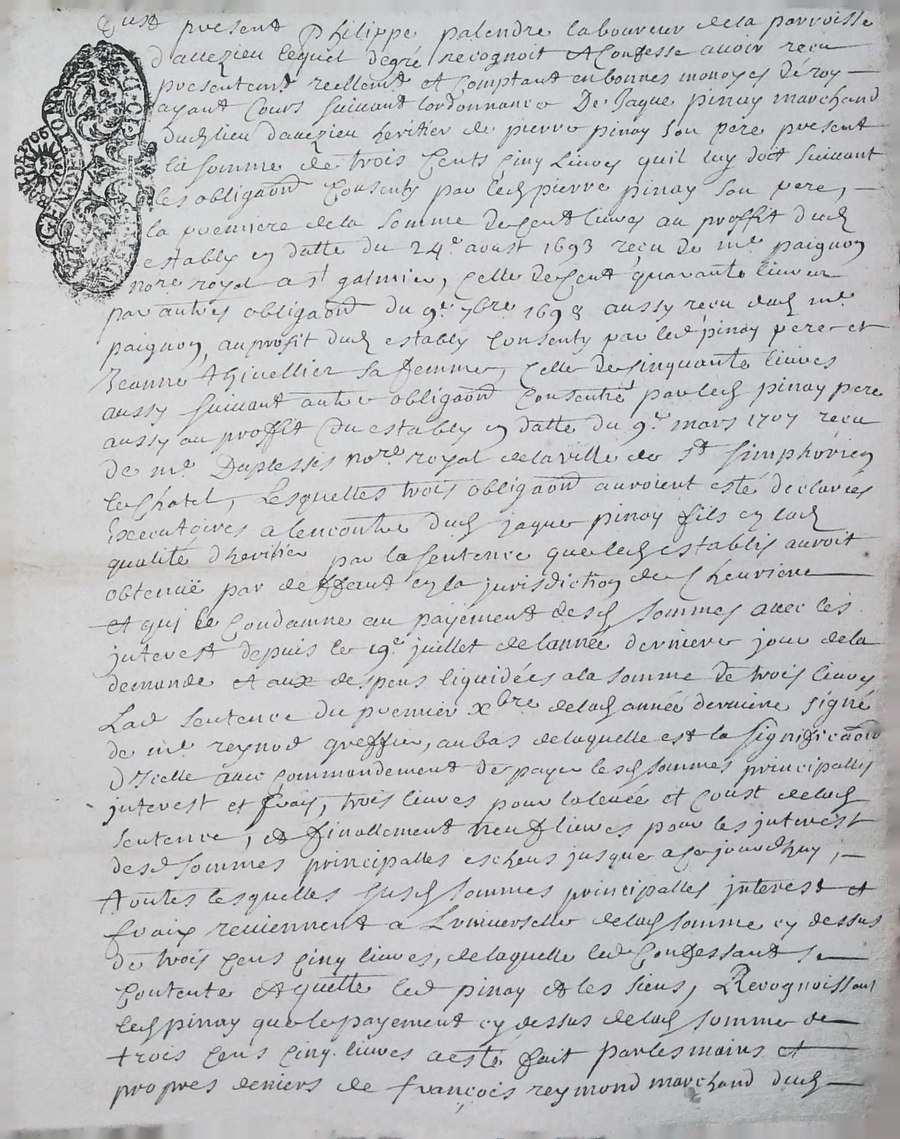 Fust present Philippe palendre laboureur de la parroisse
d'auezieu lequel de gré recognoit et Confesse auoir recu
presentemt reellemt et Comptant en bonnes monoyes de roy
ayant Cours suiuant lordonnance De Jaque pinay marchand
dud lieu dauezieu heritier de pierre pinay son pere present
la somme de trois Cents Cinq Liures quil luy doit suiuant
les obligaõns Consenty par led pierre pinay son pere,
la premiere de la somme de Cent liures au proffit dud
estably en datte du 24e aoust 1693 reçu de me paignon
nore royal a st galmier, Celle de Cent quarante liures
par autres obligaõn du 9e 7bre 1698 aussy recu dud me
paignon, au profit dud estably Consenty par led pinay pere et
Jeanne Thiuellier sa femme, Celle de Cinquante liures
aussy suiuant autre obligaõn Consentie par led pinay pere
aussy au proffit du estably en datte du 9e mars 1707 recu
de me Duplessis nore royal de la ville de St Simphorien
le Chatel, Lesquelles trois obligaõn auroient esté declarées
Executoires a lencontre dud jaque pinay fils en lad
qualité d'heritier par la sentence que led establis auroit
obtenue par deffaut en la jurisdiction de Cheuriere
Et qui le Condamne au payement desd sommes auec les
interest depuis le 19e juillet de lannée derniere jour de la
demande et aux despens liquidées a la somme de trois liures
Lad sentence du premier Xbre de lad année derniere signé
de me reynod greffier, au bas de laquelle est la significaõn
d'Icelle auec Commandement de payer lesd sommes principalles
interest et frais, trois liures pour la leuée et Coust de lad
sentence, et finallement neuf liures pour les interest
desd sommes principalles escheus jusque a Ce jourdhuy,
Toutes lesquelles susd sommes principalles interest et
fraix reuiennent a Luniuerselle de lad somme cy dessus
de trois Cens Cinq liures, de laquelle led Confessant se
Contente et quitte led pinay et les siens, Recognoissant
led pinay que le payement cy dessus de lad somme de
trois Cens Cinq liures a esté fait par les mains et
propres deniers de françois reymond marchand dud